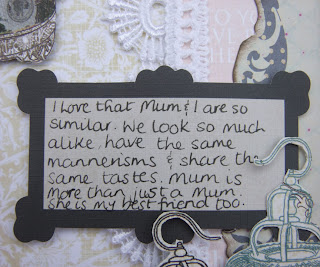 I Love that Mum & I are so
similar. We look so much
alike, have the same
mannerisms & share the
same tastes. Mum is
more than just a Mum.
She is my best friend too.